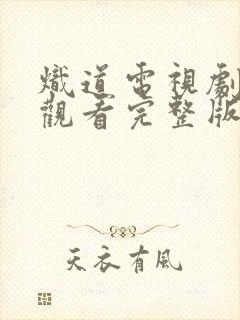 熾道電視劇
觀看完整版
天衣有風